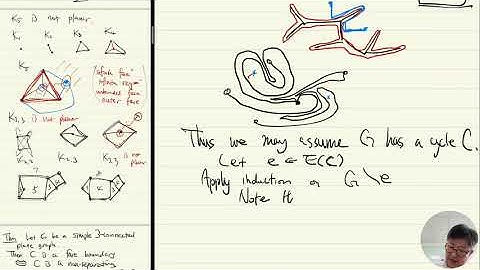 K5 is not planar
K1
K2
K3
K4
K5
"infinite face"
infinite region
unbounded face
outer face
K3,3 is not planar
K2,2
K2,3
K3,3 is no
planar
5
4
4
Thm Let G be a simple 3-connected
plane graph.
Then C is a face boundary
⇔ C is a non-separating
Thus we may assume G has a cycle C.
Let e ∈ E(C)
Apply induction on G\e
Note H